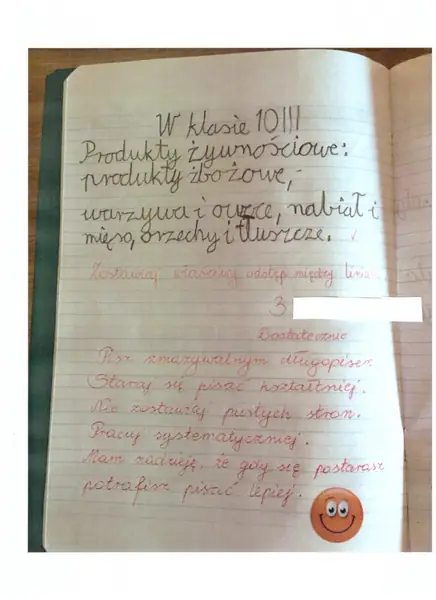 W klasie 10III
Produkty żywnościowe:
produkty zbożowe,
warzywa i owoce, nabiał i
mięso, orzechy i tłuszcze.
Zostawiaj właściwy odstęp między
3
Dostatecznie
Pisz zmazywalnym długopisem
Staraj się pisać kształtniej.
Nie zostawiaj pustych stron.
Pracuj systematyczniej.
Mam nadzieję, że gdy się postarasz
potrafisz pisać lepiej.